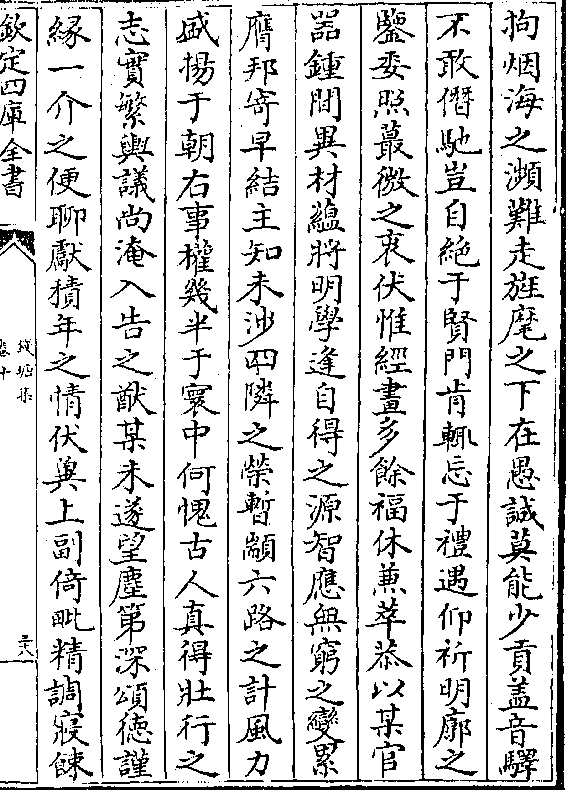 拘烟海之濒難走旌麾之下在愚誠莫能少貢盖音驛
不敢僭馳豈自絶于賢門肯輙忘于禮遇仰祈明廓之
鑒委照蕞微之衷伏惟經畫多餘福休兼萃恭以某官
器鍾間異材蘊將明學逢自得之源智應無窮之變累
膺邦寄早結主知未渉四隣之榮暫顓六路之計風力
威揚于朝右事權幾半于寰中何愧古人真得壯行之
志實繁輿議尚淹入告之猷某未遂望塵第深頌徳謹
緣一介之便聊獻積年之情伏兾上副倚毗精調寢餗
欽定四庫全書
錢塘集
卷十
三十八